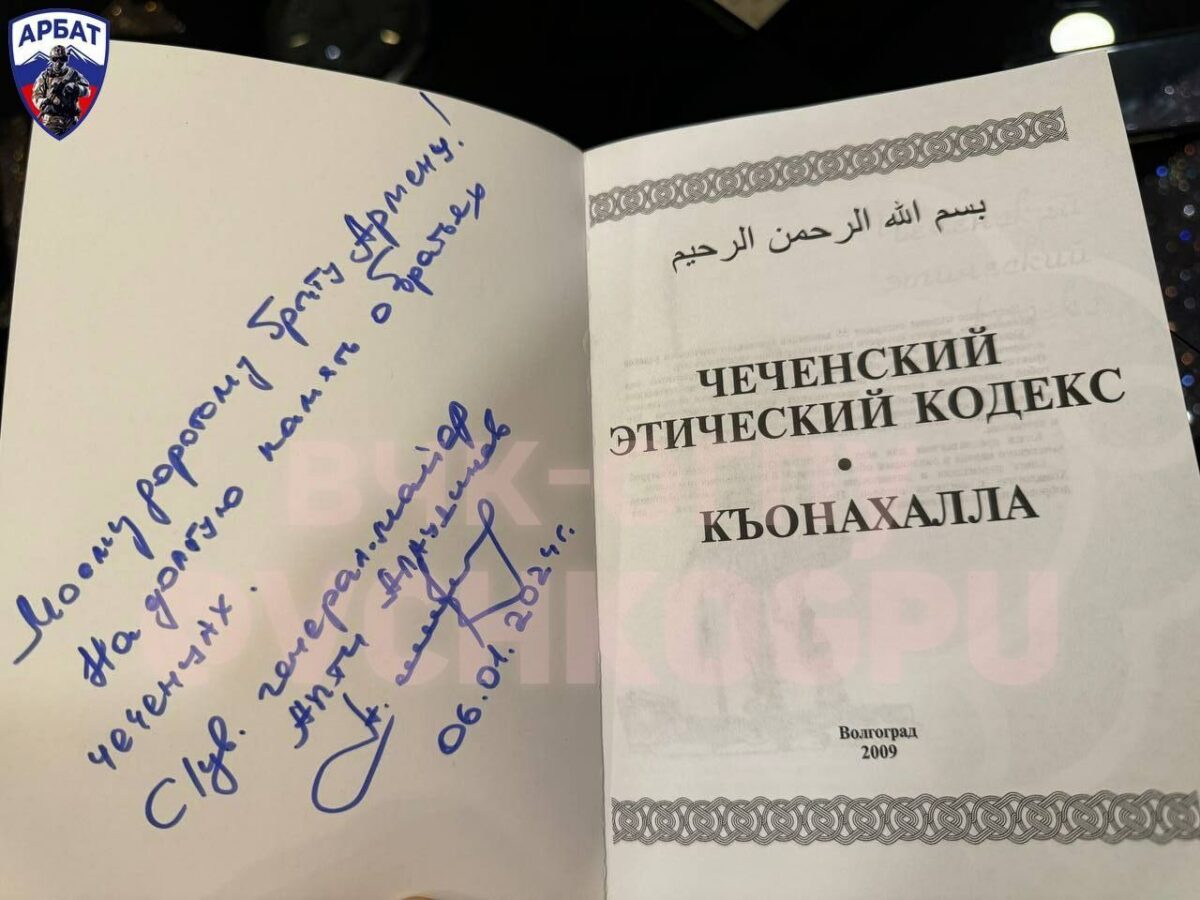 АРБАТ
Моему дорогому брату Армену!
На долгую память о братьях
чеченцах.
С/ув. генерал-майор
Апти Алаудинов
06.01.2024г.
بسم الله الرحمن الرحيم
ЧЕЧЕНСКИЙ
ЭТИЧЕСКИЙ КОДЕКС
•
КЪОНАХАЛЛА
Волгоград
2009
ВЧК-ОГПУ
@VCHKOGPU